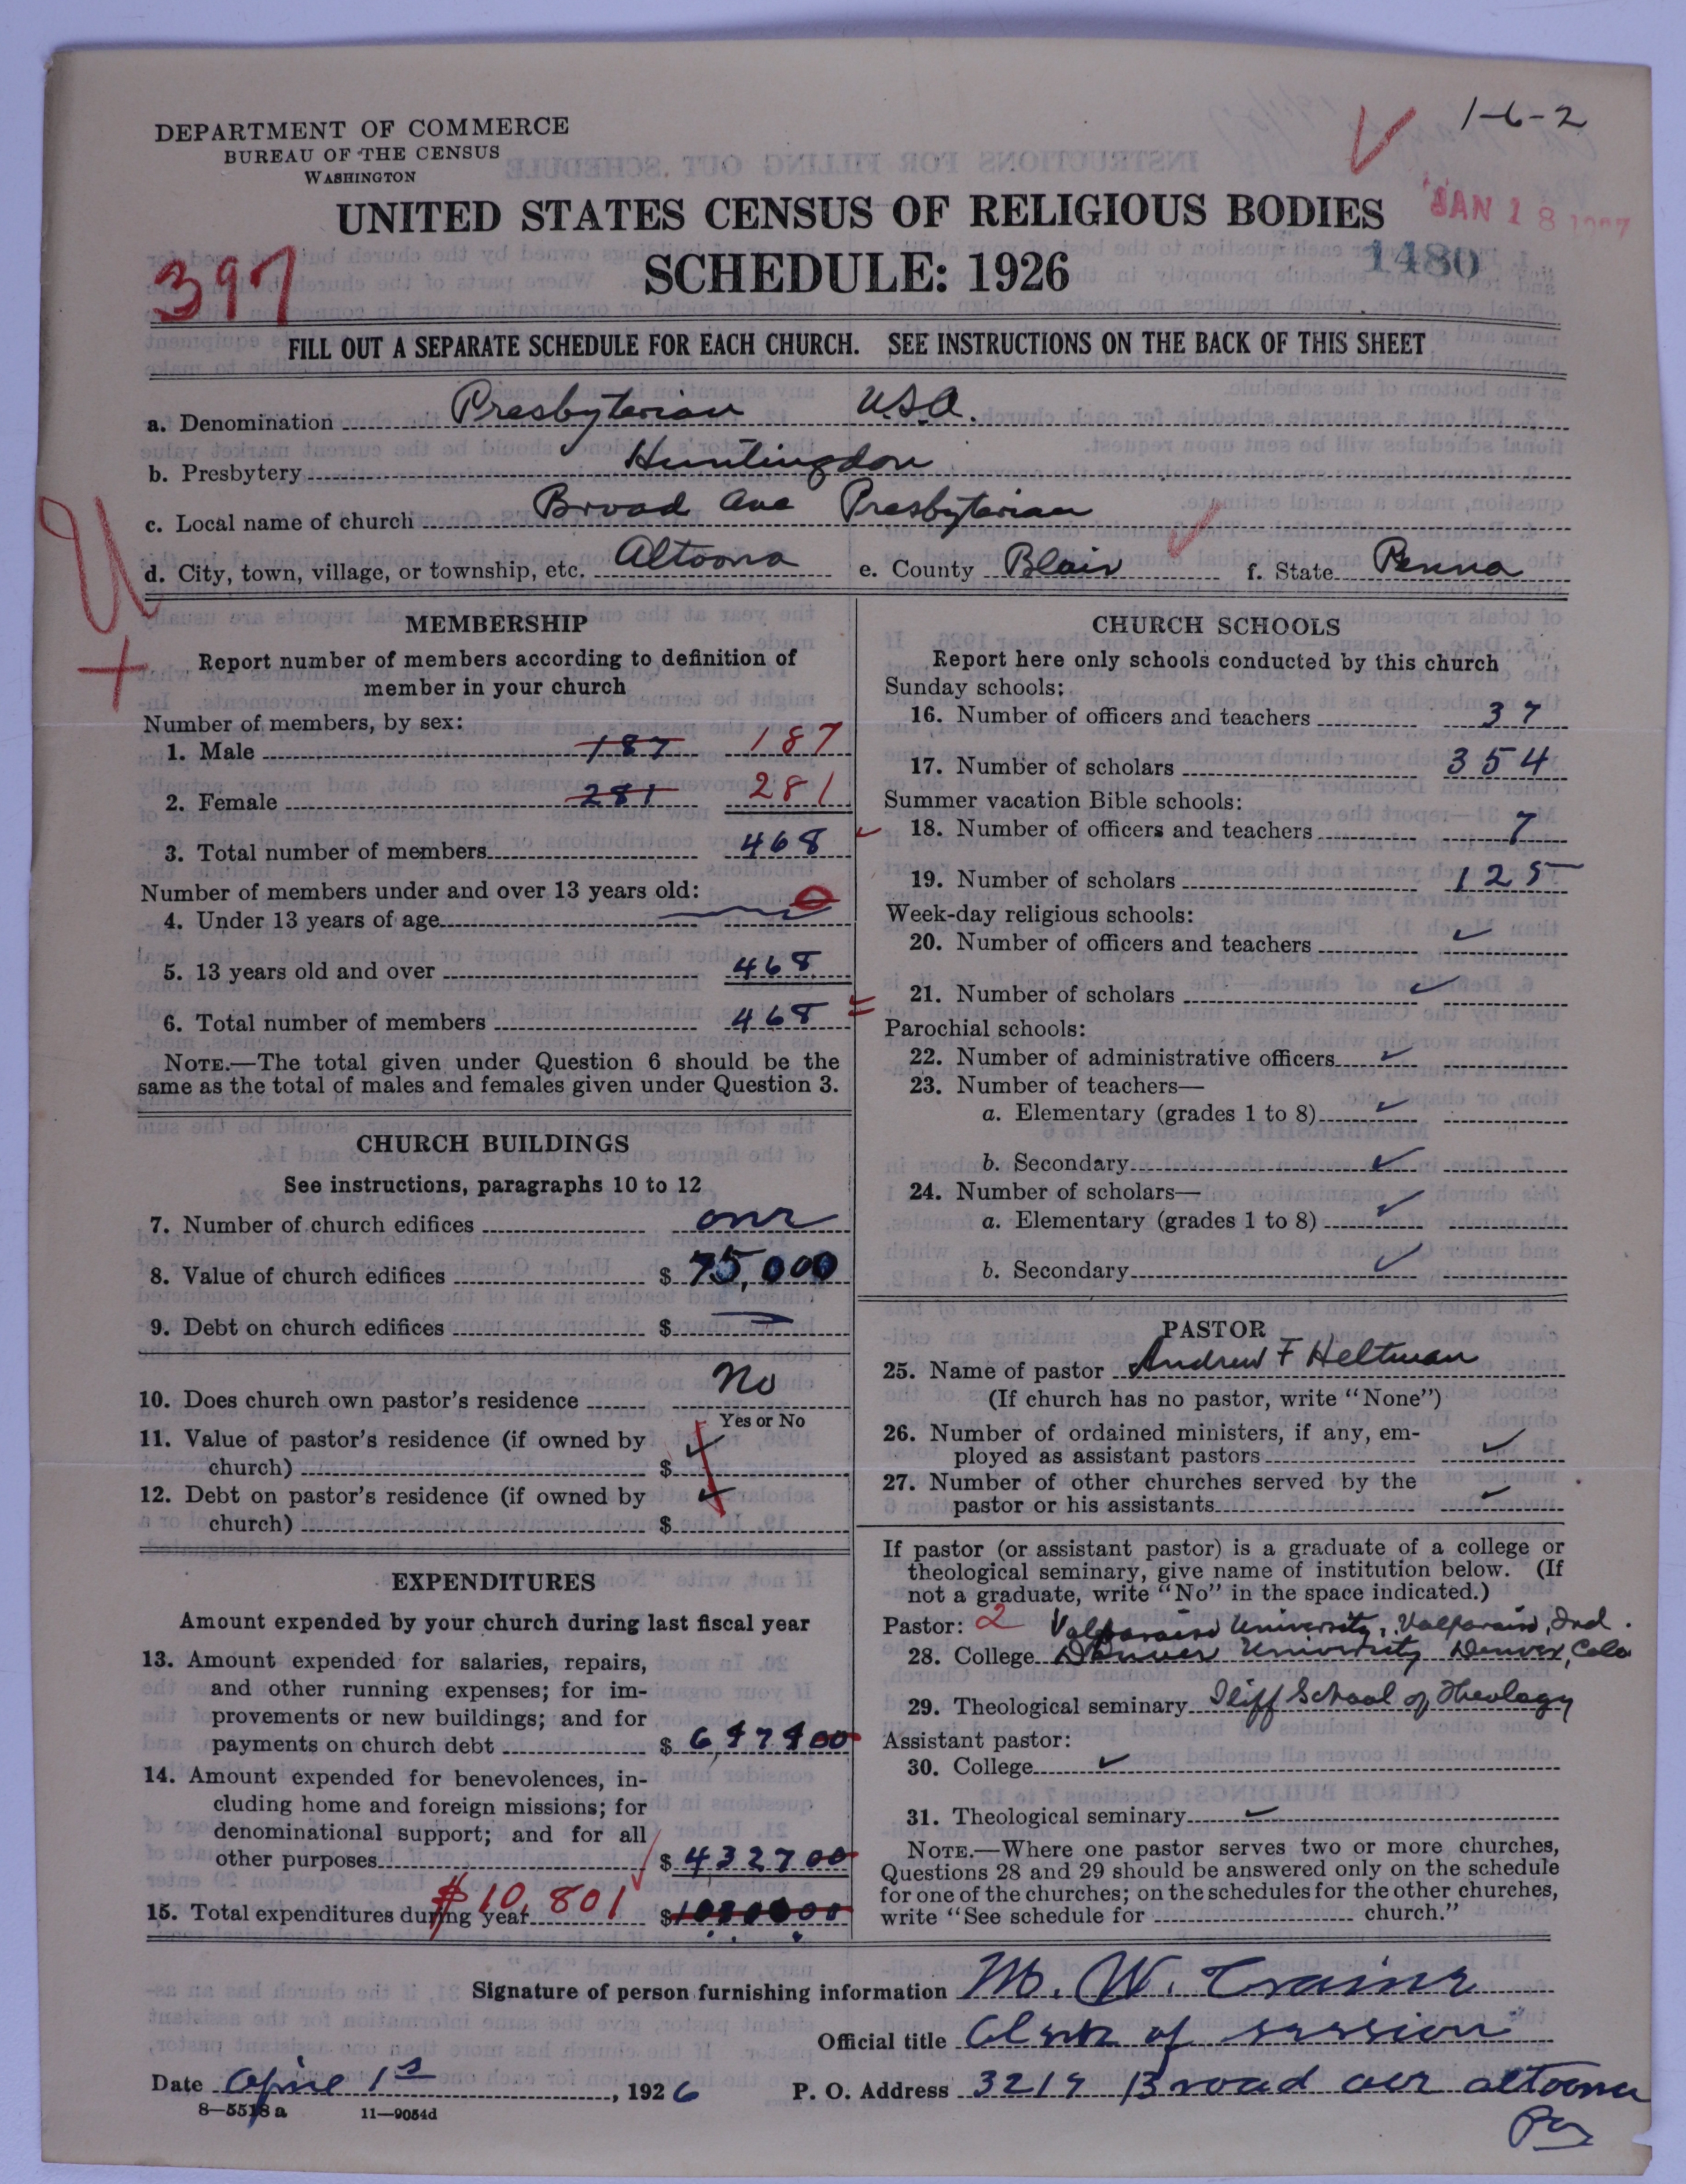 DEPARTMENT OF COMMERCE
BUREAU OF THE CENSUS
WASHINGTON
1-6-2
JAN 18 1927
UNITED STATES CENSUS OF RELIGIOUS BODIES
SCHEDULE: 1926
1480
397
FILL OUT A SEPARATE SCHEDULE FOR EACH CHURCH. SEE INSTRUCTIONS ON THE BACK OF THIS SHEET
a. Denomination Presbyterian U.S.A.
b. Presbytery Huntingdon
c. Local name of church Broad Ave Presbyterian
d. City, town, village, or township, etc. Altoona e. County Blair f. State Penna
MEMBERSHIP
Report number of members according to definition of
member in your church
Number of members, by sex:
1. Male 187 187
2. Female 281 281
3. Total number of members 468
Number of members under and over 13 years old:
4. Under 13 years of age 0
5. 13 years old and over 468
6. Total number of members 468
NOTE.—The total given under Question 6 should be the
same as the total of males and females given under Question 3.
CHURCH BUILDINGS
See instructions, paragraphs 10 to 12
7. Number of church edifices one
8. Value of church edifices $ 75,000
9. Debt on church edifices $
10. Does church own pastor's residence No
Yes or No
11. Value of pastor's residence (if owned by
church) $
12. Debt on pastor's residence (if owned by
church) $
EXPENDITURES
Amount expended by your church during last fiscal year
13. Amount expended for salaries, repairs,
and other running expenses; for im-
provements or new buildings; and for
payments on church debt $
14. Amount expended for benevolences, in-
cluding home and foreign missions; for
denominational support; and for all
other purposes $ 4327 00
15. Total expenditures during year $10,801 $
CHURCH SCHOOLS
Report here only schools conducted by this church
Sunday schools:
16. Number of officers and teachers 37
17. Number of scholars 354
Summer vacation Bible schools:
18. Number of officers and teachers 7
19. Number of scholars 125
Week-day religious schools:
20. Number of officers and teachers
21. Number of scholars
Parochial schools:
22. Number of administrative officers
23. Number of teachers—
a. Elementary (grades 1 to 8)
b. Secondary
24. Number of scholars—
a. Elementary (grades 1 to 8)
b. Secondary
PASTOR
25. Name of pastor Andrew F Heltman
(If church has no pastor, write "None")
26. Number of ordained ministers, if any, em-
ployed as assistant pastors
27. Number of other churches served by the
pastor or his assistants
If pastor (or assistant pastor) is a graduate of a college or
theological seminary, give name of institution below. (If
not a graduate, write "No" in the space indicated.)
Pastor: 2 Valparaiso University, Valparaiso, Ind.
28. College Denver University Denver, Colo
29. Theological seminary Iliff School of Theology
Assistant pastor:
30. College
31. Theological seminary
NOTE.—Where one pastor serves two or more churches,
Questions 28 and 29 should be answered only on the schedule
for one of the churches; on the schedules for the other churches,
write "See schedule for church."
Signature of person furnishing information M. W. Traine
Official title Clerk of session
Date 1st, 1926 P. O. Address Broad ave altoona
Pa
8—5518 a 11—9054d